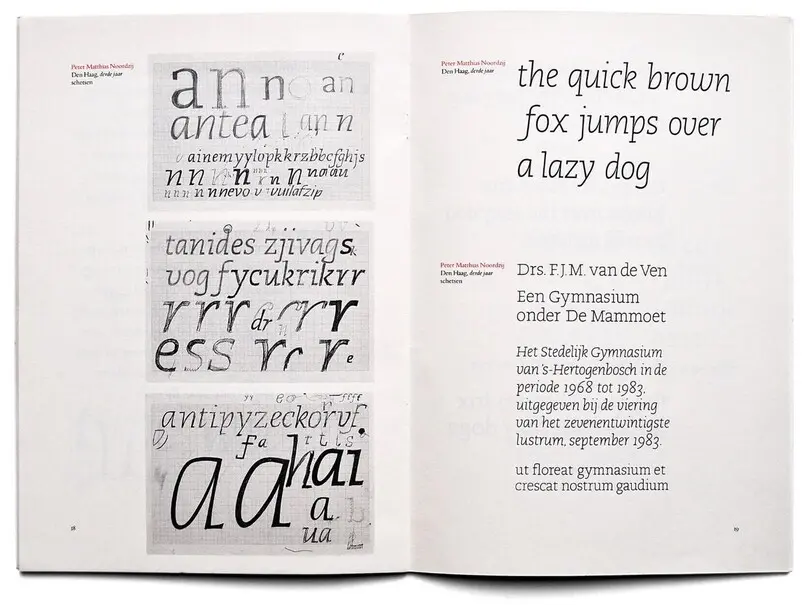 Peter Matthias Noordzij
Den Haag, derde jaar
schetsen
c
an n an
antea
ainemyylopkkrzbbcfghjs
tanides zjivags
vogfycukrikrr
r r r dr r r r
ess r r r e
antipyzeckorvf
fa r t l s
a a hai
a
ua
58
Peter Matthias Noordzij
Den Haag, derde jaar
the quick brown
fox jumps over
a lazy dog
Peter Matthias Noordzij
Den Haag, derde jaar
schetsen
Drs. F.J.M. van de Ven
Een Gymnasium
onder De Mammoet
Het Stedelijk Gymnasium
van 's-Hertogenbosch in de
periode 1968 tot 1983,
uitgegeven bij de viering
van het zevenentwintigste
lustrum, september 1983.
ut floreat gymnasium et
crescat nostrum gaudium